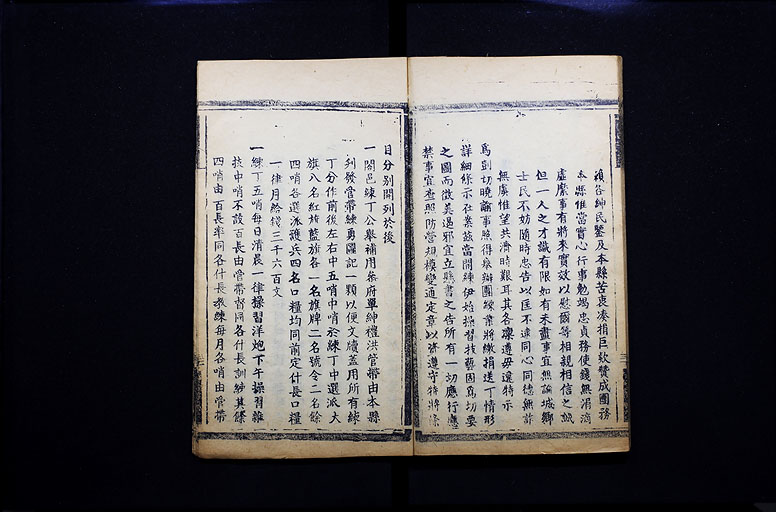 須各紳民鑒及本縣苦衷湊捐巨欵贊成團務
本縣惟當實心行事勉竭忠貞務使錢無涓滴
虛縻事有將來實效以慰爾等相親相信之誠
但一人之才識有限如有未盡事宜無論城鄉
士民不妨隨時忠告以匡不逮同心同德無詐
無虞惟望共濟時艱耳其各凜遵毋違特示
為剴切曉諭事照得舉辦團練業將繳捐送丁情形
詳細條示在案茲當開練伊始操習技藝固為切要
之圖而微美遏邪宜立縣書之告所有一切應行應
禁事宜查照防營規模變通定章以資遵守特將條
目分別開列於後
一闔邑練丁公舉補用叅府單紳禮洪管帶由本縣
刋發管帶練勇圖記一顆以便文牘蓋用所有練
丁分作前後左右中五哨中哨於練丁中選派大
旗八名紅旗藍旗各一名旗牌二名號令二名餘
四哨各選派護兵四名口糧均同前定什長口糧
一律月給錢三千六百文
一練丁五哨每日清晨一律操習洋炮下午操習雜
技中哨不設百長由管帶督同各什長訓練其餘
四哨由百長率同各什長教練每月各哨由管帶